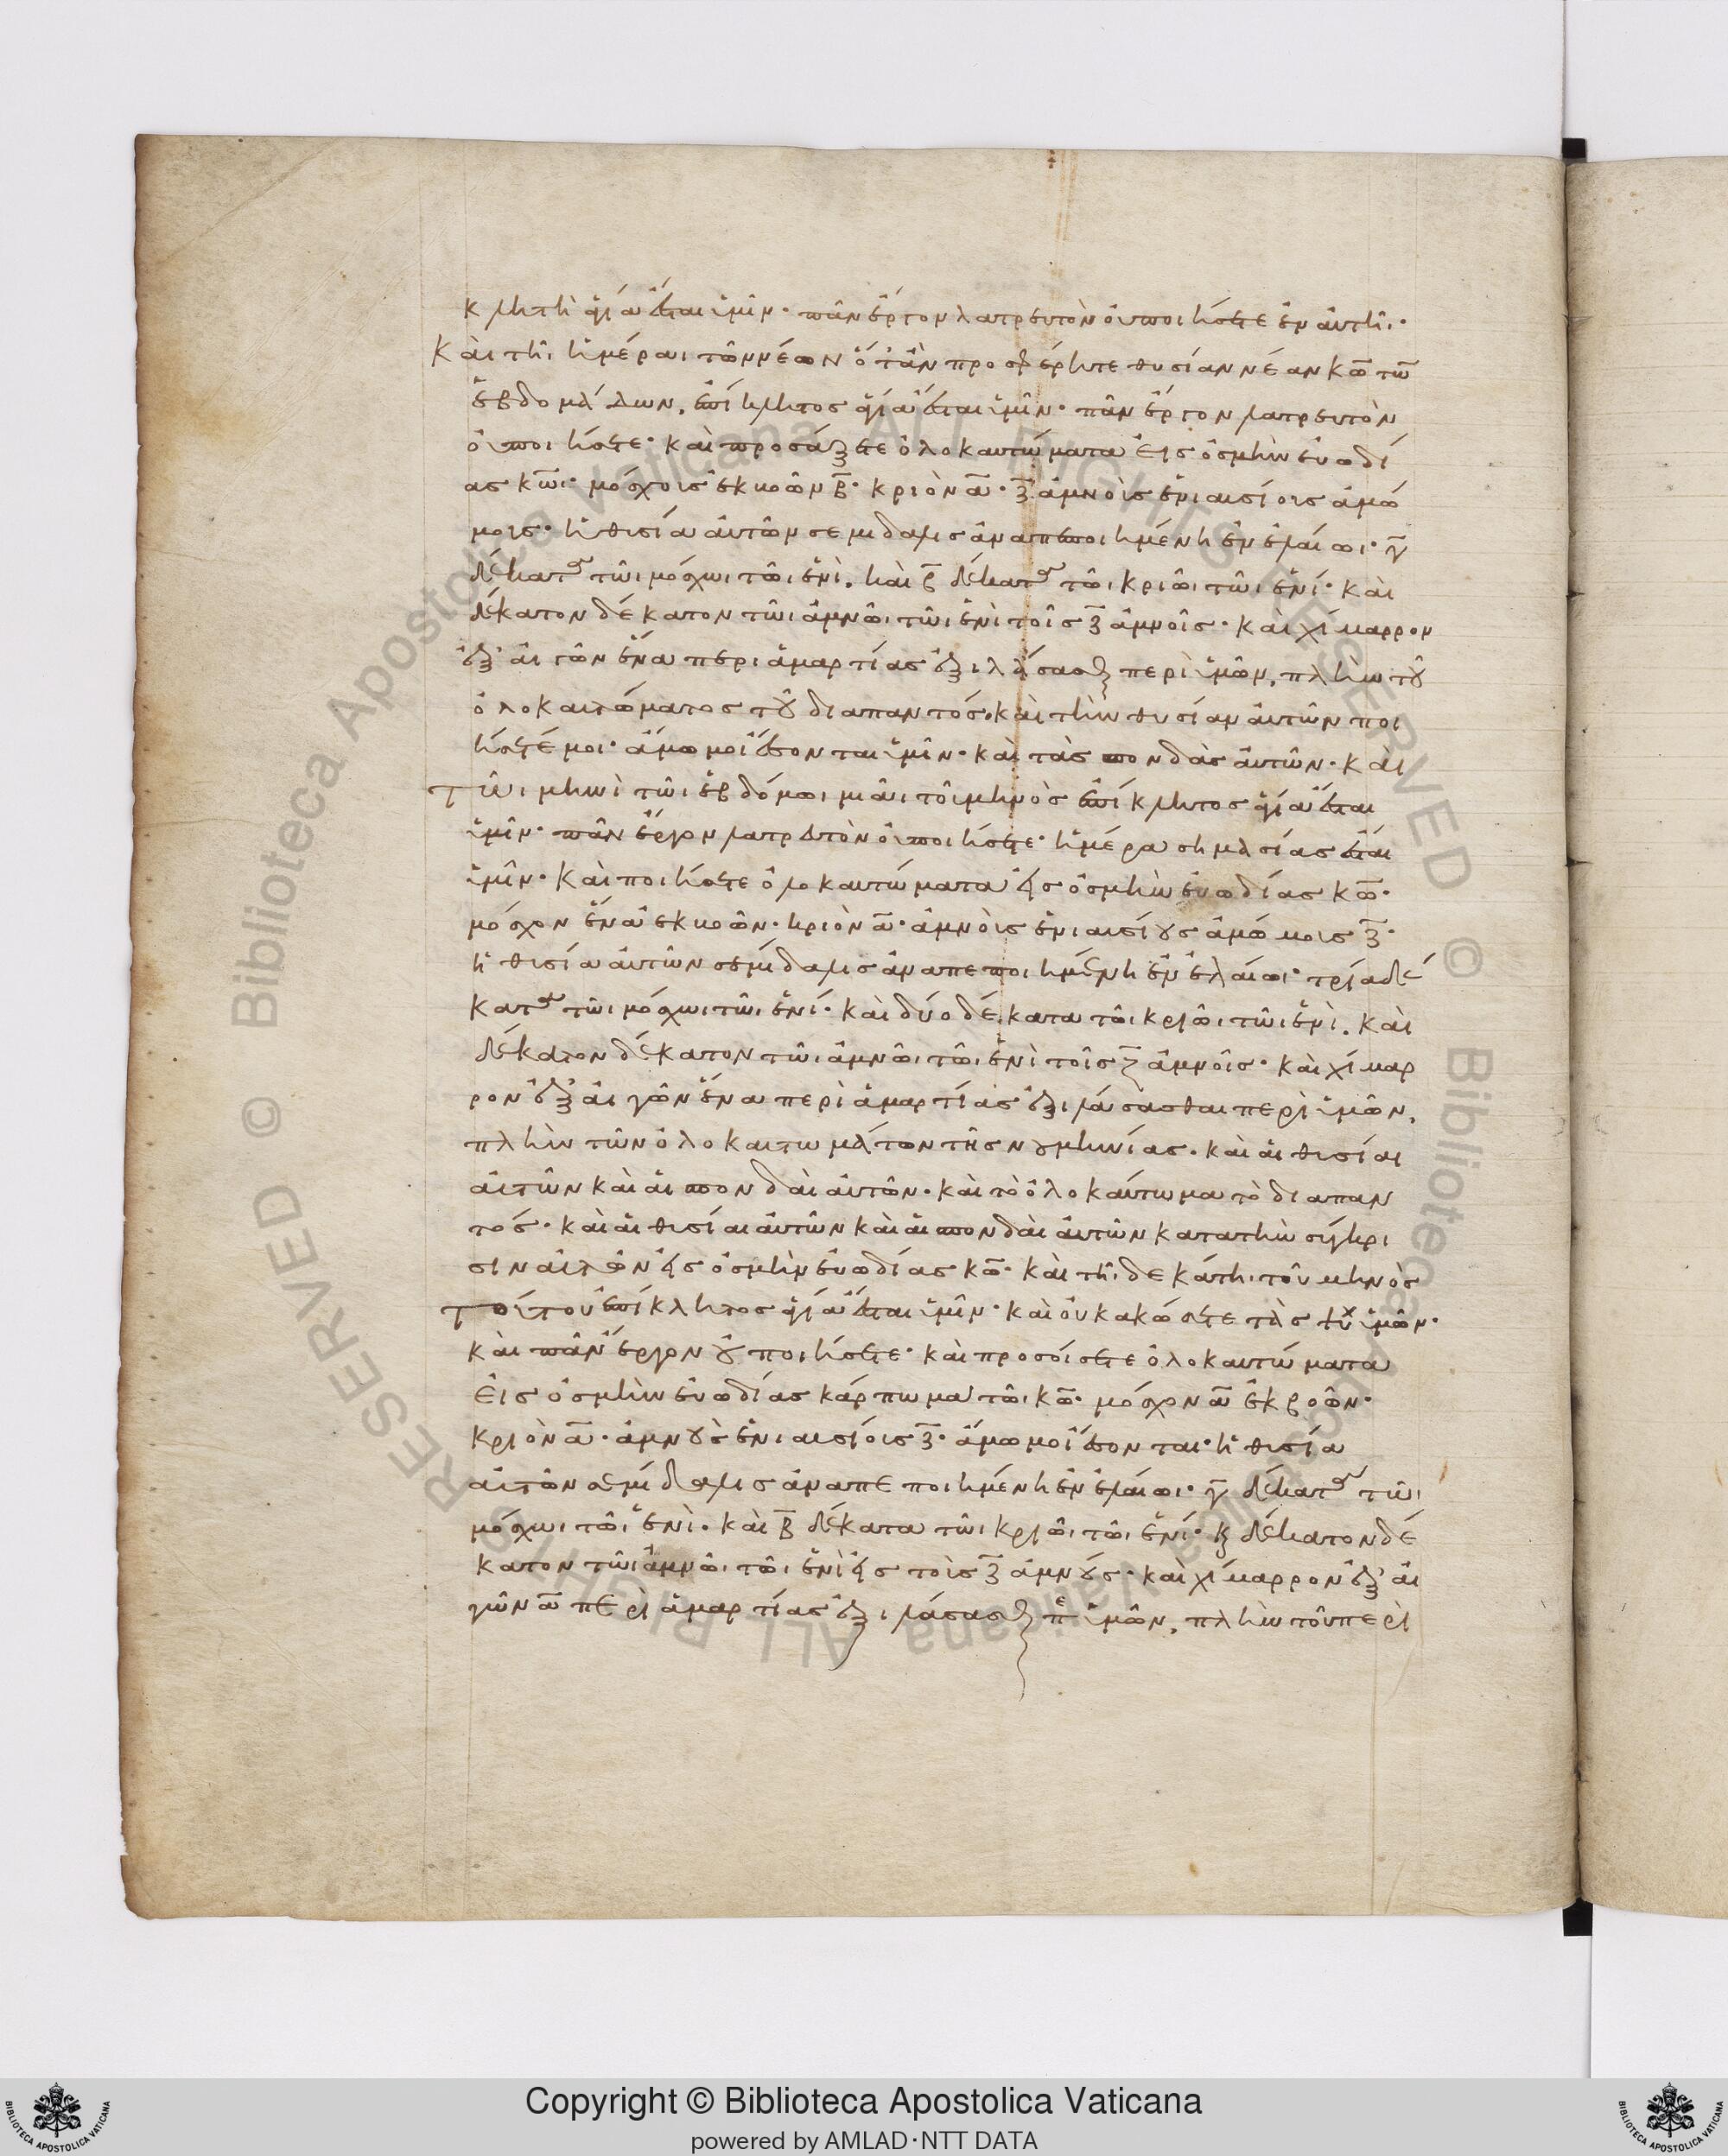 κλητὴ ἁγία ἔσται ὑμῖν· πᾶν ἔργον λατρευτὸν οὐ ποιήσετε ἐν αὐτῆι·
Καὶ τῆι ἡμέραι τῶν νέων ὅτ' ἂν προσφέρητε θυσίαν νέαν κ̅ω̅ τῶ̅
ἑβδομάδων, ἐπίκλητος ἁγία ἔσται ὑμῖν· πᾶν ἔργον λατρευτὸν
οὐ ποιήσετε· καὶ προσάξετε ὁλοκαυτώματα εἰς ὀσμὴν εὐωδί
ας κ̅ω̅ι· μόσχους ἐκ βοῶν β̅· κριὸν α̅· ζ̅ ἀμνοὺς ἐνιαυσίους ἀμώ
μους· ἡ θυσία αὐτῶν σεμίδαλις ἀναπεποιημένη ἐν ἐλαίωι· γ̅
δέκατα τῶι μόσχωι τῶι ἑνί. καὶ β̅ δέκατα τῶι κριῶι τῶι ἑνί· καὶ
δέκατον δέκατον τῶι ἀμνῶι τῶι ἑνὶ τοῖς ζ̅ ἀμνοῖς· καὶ χίμαρρον
ἐξ αἰγῶν ἕνα περι ἁμαρτίας ἐξιλάσασθαι περὶ ὑμῶν, πλὴν τοῦ
ὁλοκαυτώματος τοῦ διαπαντός. καὶ τὴν θυσίαν αὐτῶν ποι
ήσετέ μοι· ἄμωμοι ἔσονται ὑμῖν· καὶ τὰς σπονδὰς αὐτῶν· Καὶ
τῶι μηνὶ τῶι ἑβδόμωι μιᾶι τοῦ μηνὸς ἐπίκλητος ἁγία ἔσται
ὑμῖν· πᾶν ἔργον λατρευτὸν οὐ ποιήσετε· ἡμέρα σημασίας ἔσται
ὑμῖν· Καὶ ποιήσετε ὁλοκαυτώματα εἰς ὀσμὴν εὐωδίας κ̅ω̅·
μόσχον ἕνα ἐκ βοῶν· κριὸν α̅· ἀμνοὺς ἐνιαυσίους ἀμώμους ζ̅·
ἡ θυσία αὐτῶν σεμίδαλις ἀναπεποιημένη ἐν ἐλαίωι· τρία δέ
κατα τῶι μόσχωι τῶι ἑνί· καὶ δύο δέκατα τῶι κριῶι τῶι ἑνὶ. καὶ
δέκατον δέκατον τῶι ἀμνῶι τῶι ἑνὶ τοῖς ζ̅ ἀμνοῖς· καὶ χίμαρ
ρον ἐξ αἰγῶν ἕνα περὶ ἁμαρτίας ἐξιλάσασθαι περὶ ὑμῶν,
πλὴν τῶν ὁλοκαυτωμάτων τῆς νουμηνίας. καὶ αἱ θυσίαι
αὐτῶν καὶ αἱ σπονδαὶ αὐτῶν· καὶ τὸ ὁλοκαύτωμα τὸ διαπαν
τός· καὶ αἱ θυσίαι αὐτῶν καὶ αἱ σπονδαὶ αὐτῶν κατα τὴν σύγκρι
σιν αὐτῶν εἰς ὀσμὴν εὐωδίας κ̅ω̅· καὶ τῆι δεκάτηι τοῦ μηνὸς
τούτου ἐπίκλητος ἁγία ἔσται ὑμῖν· καὶ οὐ κακώσετε τὰς ψυχ ὑμῶν·
καὶ πᾶν ἔργον οὐ ποιήσετε· καὶ προσοίσετε ὁλοκαυτώματα
εἰς ὀσμὴν εὐωδίας κάρπωμα τῶι κ̅ω̅· μόσχον α̅ ἐκ βοῶν·
κριὸν α̅· ἀμνοὺς ἐνιαυσίους ζ̅· ἄμωμοι ἔσονται· ἡ θυσία
αὐτῶν σεμίδαλις ἀναπεποιημένη ἐν ἐλαίωι· γ̅ δέκατα τῶι
μόσχωι τῶι ἑνὶ. καὶ β̅ δέκατα τῶι κριῶι τῶι ἑνί· κ δέκατον δέ
κατον τῶι ἀμνῶι τῶι ἑνὶ εἰς τοὺς ζ̅ ἀμνούς· καὶ χίμαρρον ἐξ αἰ
γῶν α̅ περὶ ἁμαρτίας ἐξιλάσασθαι πε ὑμῶν, πλὴν τοῦ περὶ
© Biblioteca Apostolica Vaticana ALL RIGHTS RESERVED © Biblioteca Apostolica Vaticana ALL RIGHTS RESERVED
Copyright © Biblioteca Apostolica Vaticana
powered by AMLAD·NTT DATA
BIBLIOTECA APOSTOLICA VATICANA
BIBLIOTECA APOSTOLICA VATICANA